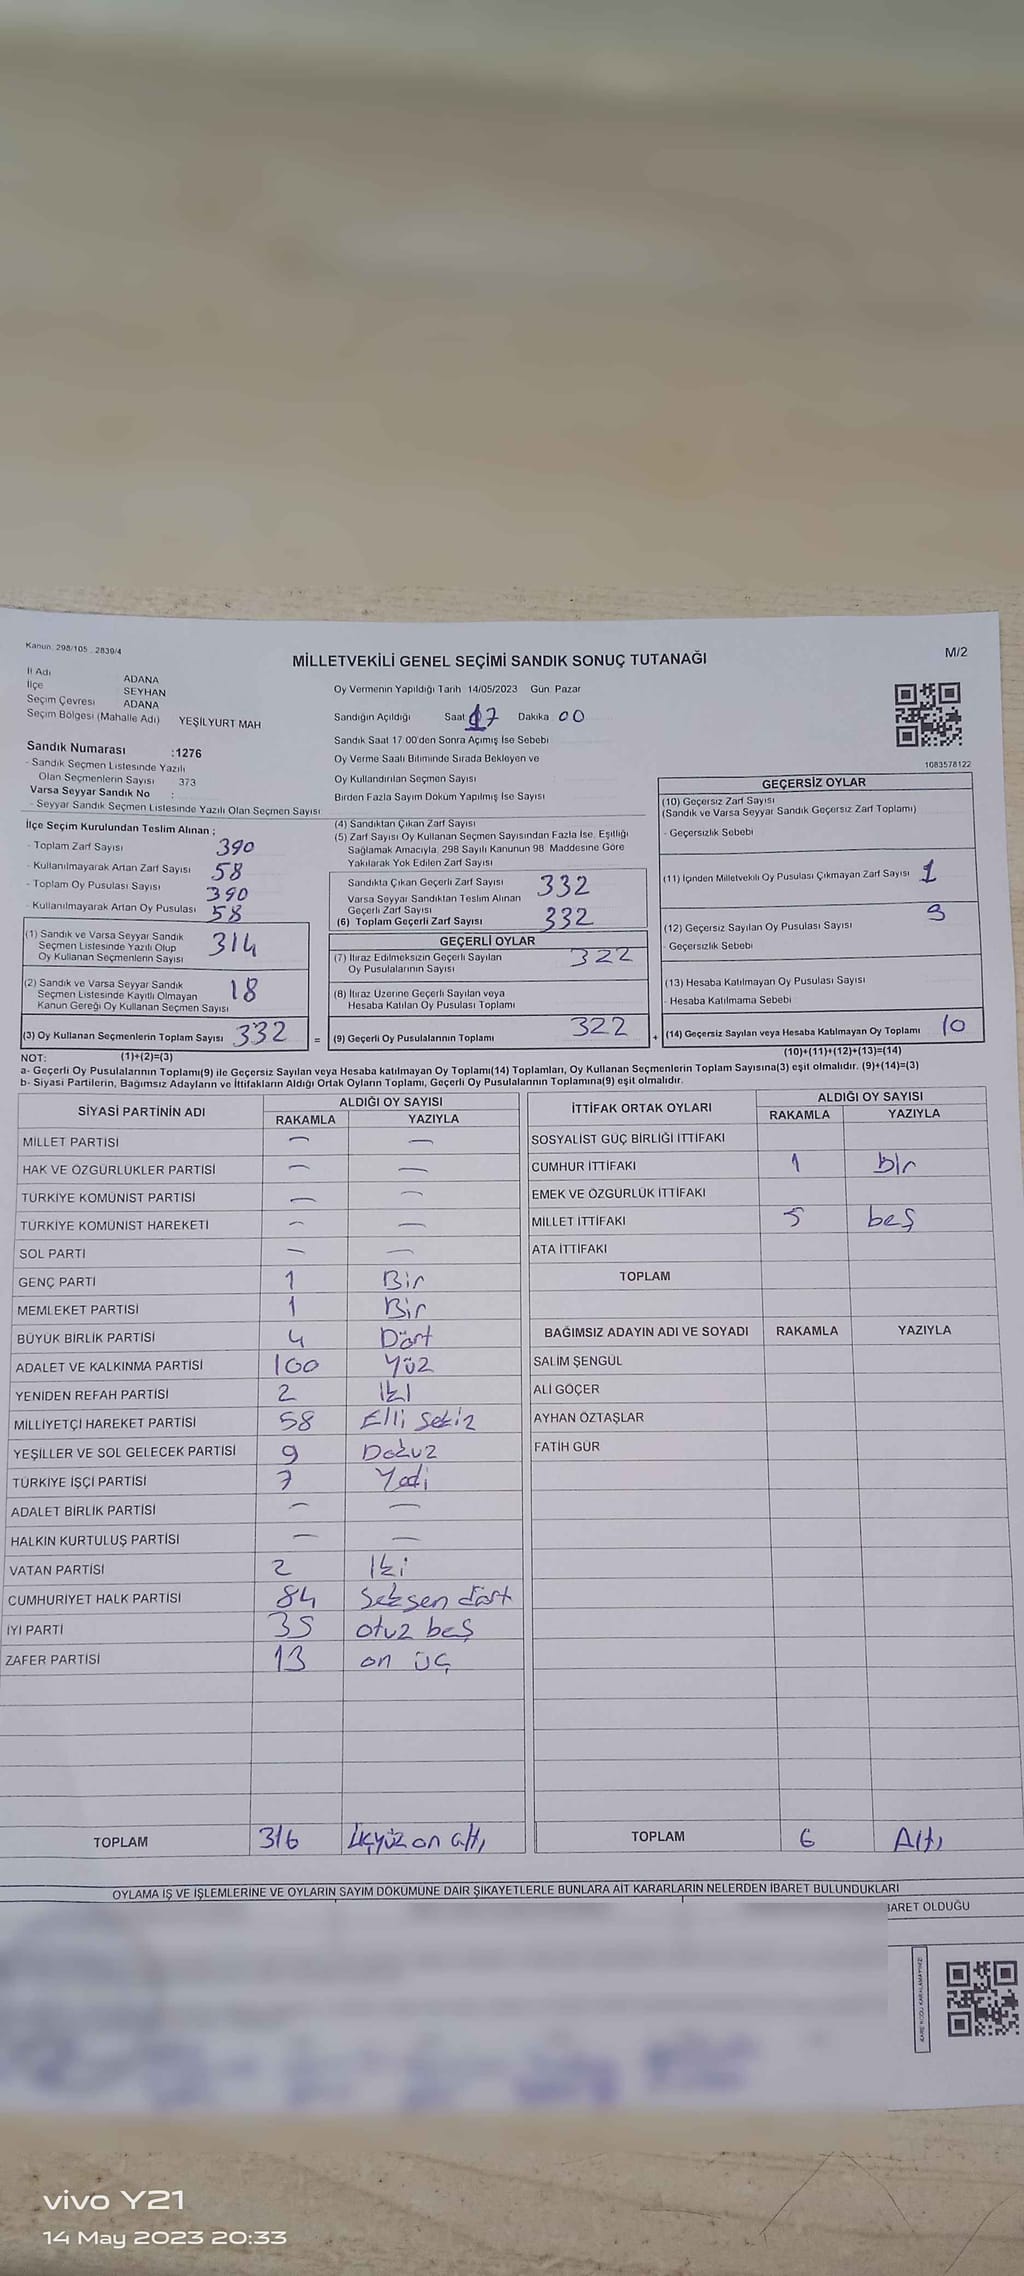 Kanun. 298/105 . 2839/4
MİLLETVEKİLİ GENEL SEÇİMİ SANDIK SONUÇ TUTANAĞI
M/2
İl Adı ADANA
İlçe SEYHAN
Seçim Çevresi ADANA
Seçim Bölgesi (Mahalle Adı) YEŞİLYURT MAH
Sandık Numarası :1276
- Sandık Seçmen Listesinde Yazılı
Olan Seçmenlerin Sayısı 373
Varsa Seyyar Sandık No :
- Seyyar Sandık Seçmen Listesinde Yazılı Olan Seçmen Sayısı
Oy Vermenin Yapıldığı Tarih 14/05/2023 Gün Pazar
Sandığın Açıldığı Saat 17 Dakika 00
Sandık Saat 17 00'den Sonra Açımış İse Sebebi
Oy Verme Saati Bitiminde Sırada Bekleyen ve
Oy Kullandırılan Seçmen Sayısı
Birden Fazla Sayım Döküm Yapılmış İse Sayısı
1083578122
İlçe Seçim Kurulundan Teslim Alınan ;
- Toplam Zarf Sayısı 390
- Kullanılmayarak Artan Zarf Sayısı 58
- Toplam Oy Pusulası Sayısı 390
- Kullanılmayarak Artan Oy Pusulası 58
(1) Sandık ve Varsa Seyyar Sandık
Seçmen Listesinde Yazılı Olup
Oy Kullanan Seçmenlerin Sayısı 314
(2) Sandık ve Varsa Seyyar Sandık
Seçmen Listesinde Kayıtlı Olmayan
Kanun Gereği Oy Kullanan Seçmen Sayısı 18
(3) Oy Kullanan Seçmenlerin Toplam Sayısı 332 =
(4) Sandıktan Çıkan Zarf Sayısı
(5) Zarf Sayısı Oy Kullanan Seçmen Sayısından Fazla İse, Eşitliği
Sağlamak Amacıyla, 298 Sayılı Kanunun 98. Maddesine Göre
Yakılarak Yok Edilen Zarf Sayısı
Sandıkta Çıkan Geçerli Zarf Sayısı 332
Varsa Seyyar Sandıktan Teslim Alınan
Geçerli Zarf Sayısı
(6) Toplam Geçerli Zarf Sayısı 332
GEÇERLİ OYLAR
(7) İtiraz Edilmeksizin Geçerli Sayılan
Oy Pusulalarının Sayısı 322
(8) İtiraz Üzerine Geçerli Sayılan veya
Hesaba Katılan Oy Pusulası Toplamı
(9) Geçerli Oy Pusulalarının Toplamı 322 +
GEÇERSİZ OYLAR
(10) Geçersiz Zarf Sayısı
(Sandık ve Varsa Seyyar Sandık Geçersiz Zarf Toplamı)
- Geçersizlik Sebebi
(11) İçinden Milletvekili Oy Pusulası Çıkmayan Zarf Sayısı 1
(12) Geçersiz Sayılan Oy Pusulası Sayısı 9
- Geçersizlik Sebebi
(13) Hesaba Katılmayan Oy Pusulası Sayısı
- Hesaba Katılmama Sebebi
(14) Geçersiz Sayılan veya Hesaba Katılmayan Oy Toplamı 10
NOT: (1)+(2)=(3)
(10)+(11)+(12)+(13)=(14)
a- Geçerli Oy Pusulalarının Toplamı(9) ile Geçersiz Sayılan veya Hesaba katılmayan Oy Toplamı(14) Toplamları, Oy Kullanan Seçmenlerin Toplam Sayısına(3) eşit olmalıdır. (9)+(14)=(3)
b- Siyasi Partilerin, Bağımsız Adayların ve İttifakların Aldığı Ortak Oyların Toplamı, Geçerli Oy Pusulalarının Toplamına(9) eşit olmalıdır.
SİYASİ PARTİNİN ADI ALDIĞI OY SAYISI
RAKAMLA YAZIYLA
MİLLET PARTİSİ — —
HAK VE ÖZGÜRLÜKLER PARTİSİ — —
TÜRKİYE KOMÜNİST PARTİSİ — —
TÜRKİYE KOMÜNİST HAREKETİ — —
SOL PARTİ — —
GENÇ PARTİ 1 Bir
MEMLEKET PARTİSİ 1 Bir
BÜYÜK BİRLİK PARTİSİ 4 Dört
ADALET VE KALKINMA PARTİSİ 100 Yüz
YENİDEN REFAH PARTİSİ 2 İki
MİLLİYETÇİ HAREKET PARTİSİ 58 Elli sekiz
YEŞİLLER VE SOL GELECEK PARTİSİ 9 Dokuz
TÜRKİYE İŞÇİ PARTİSİ 7 Yedi
ADALET BİRLİK PARTİSİ — —
HALKIN KURTULUŞ PARTİSİ — —
VATAN PARTİSİ 2 İki
CUMHURİYET HALK PARTİSİ 84 Seksen dört
İYİ PARTİ 35 otuz beş
ZAFER PARTİSİ 13 on üç
TOPLAM 316 Üçyüz on altı
İTTİFAK ORTAK OYLARI ALDIĞI OY SAYISI
RAKAMLA YAZIYLA
SOSYALİST GÜÇ BİRLİĞİ İTTİFAKI
CUMHUR İTTİFAKI 1 bir
EMEK VE ÖZGÜRLÜK İTTİFAKI
MİLLET İTTİFAKI 5 beş
ATA İTTİFAKI
TOPLAM
BAĞIMSIZ ADAYIN ADI VE SOYADI RAKAMLA YAZIYLA
SALİM ŞENGÜL
ALİ GÖÇER
AYHAN ÖZTAŞLAR
FATİH GÜR
TOPLAM 6 Altı
OYLAMA İŞ VE İŞLEMLERİNE VE OYLARIN SAYIM DÖKÜMÜNE DAİR ŞİKAYETLERLE BUNLARA AİT KARARLARIN NELERDEN İBARET BULUNDUKLARI
BARET OLDUĞU
KARE KODU KARALAMAYINIZ!
vivo Y21
14 May 2023 20:33